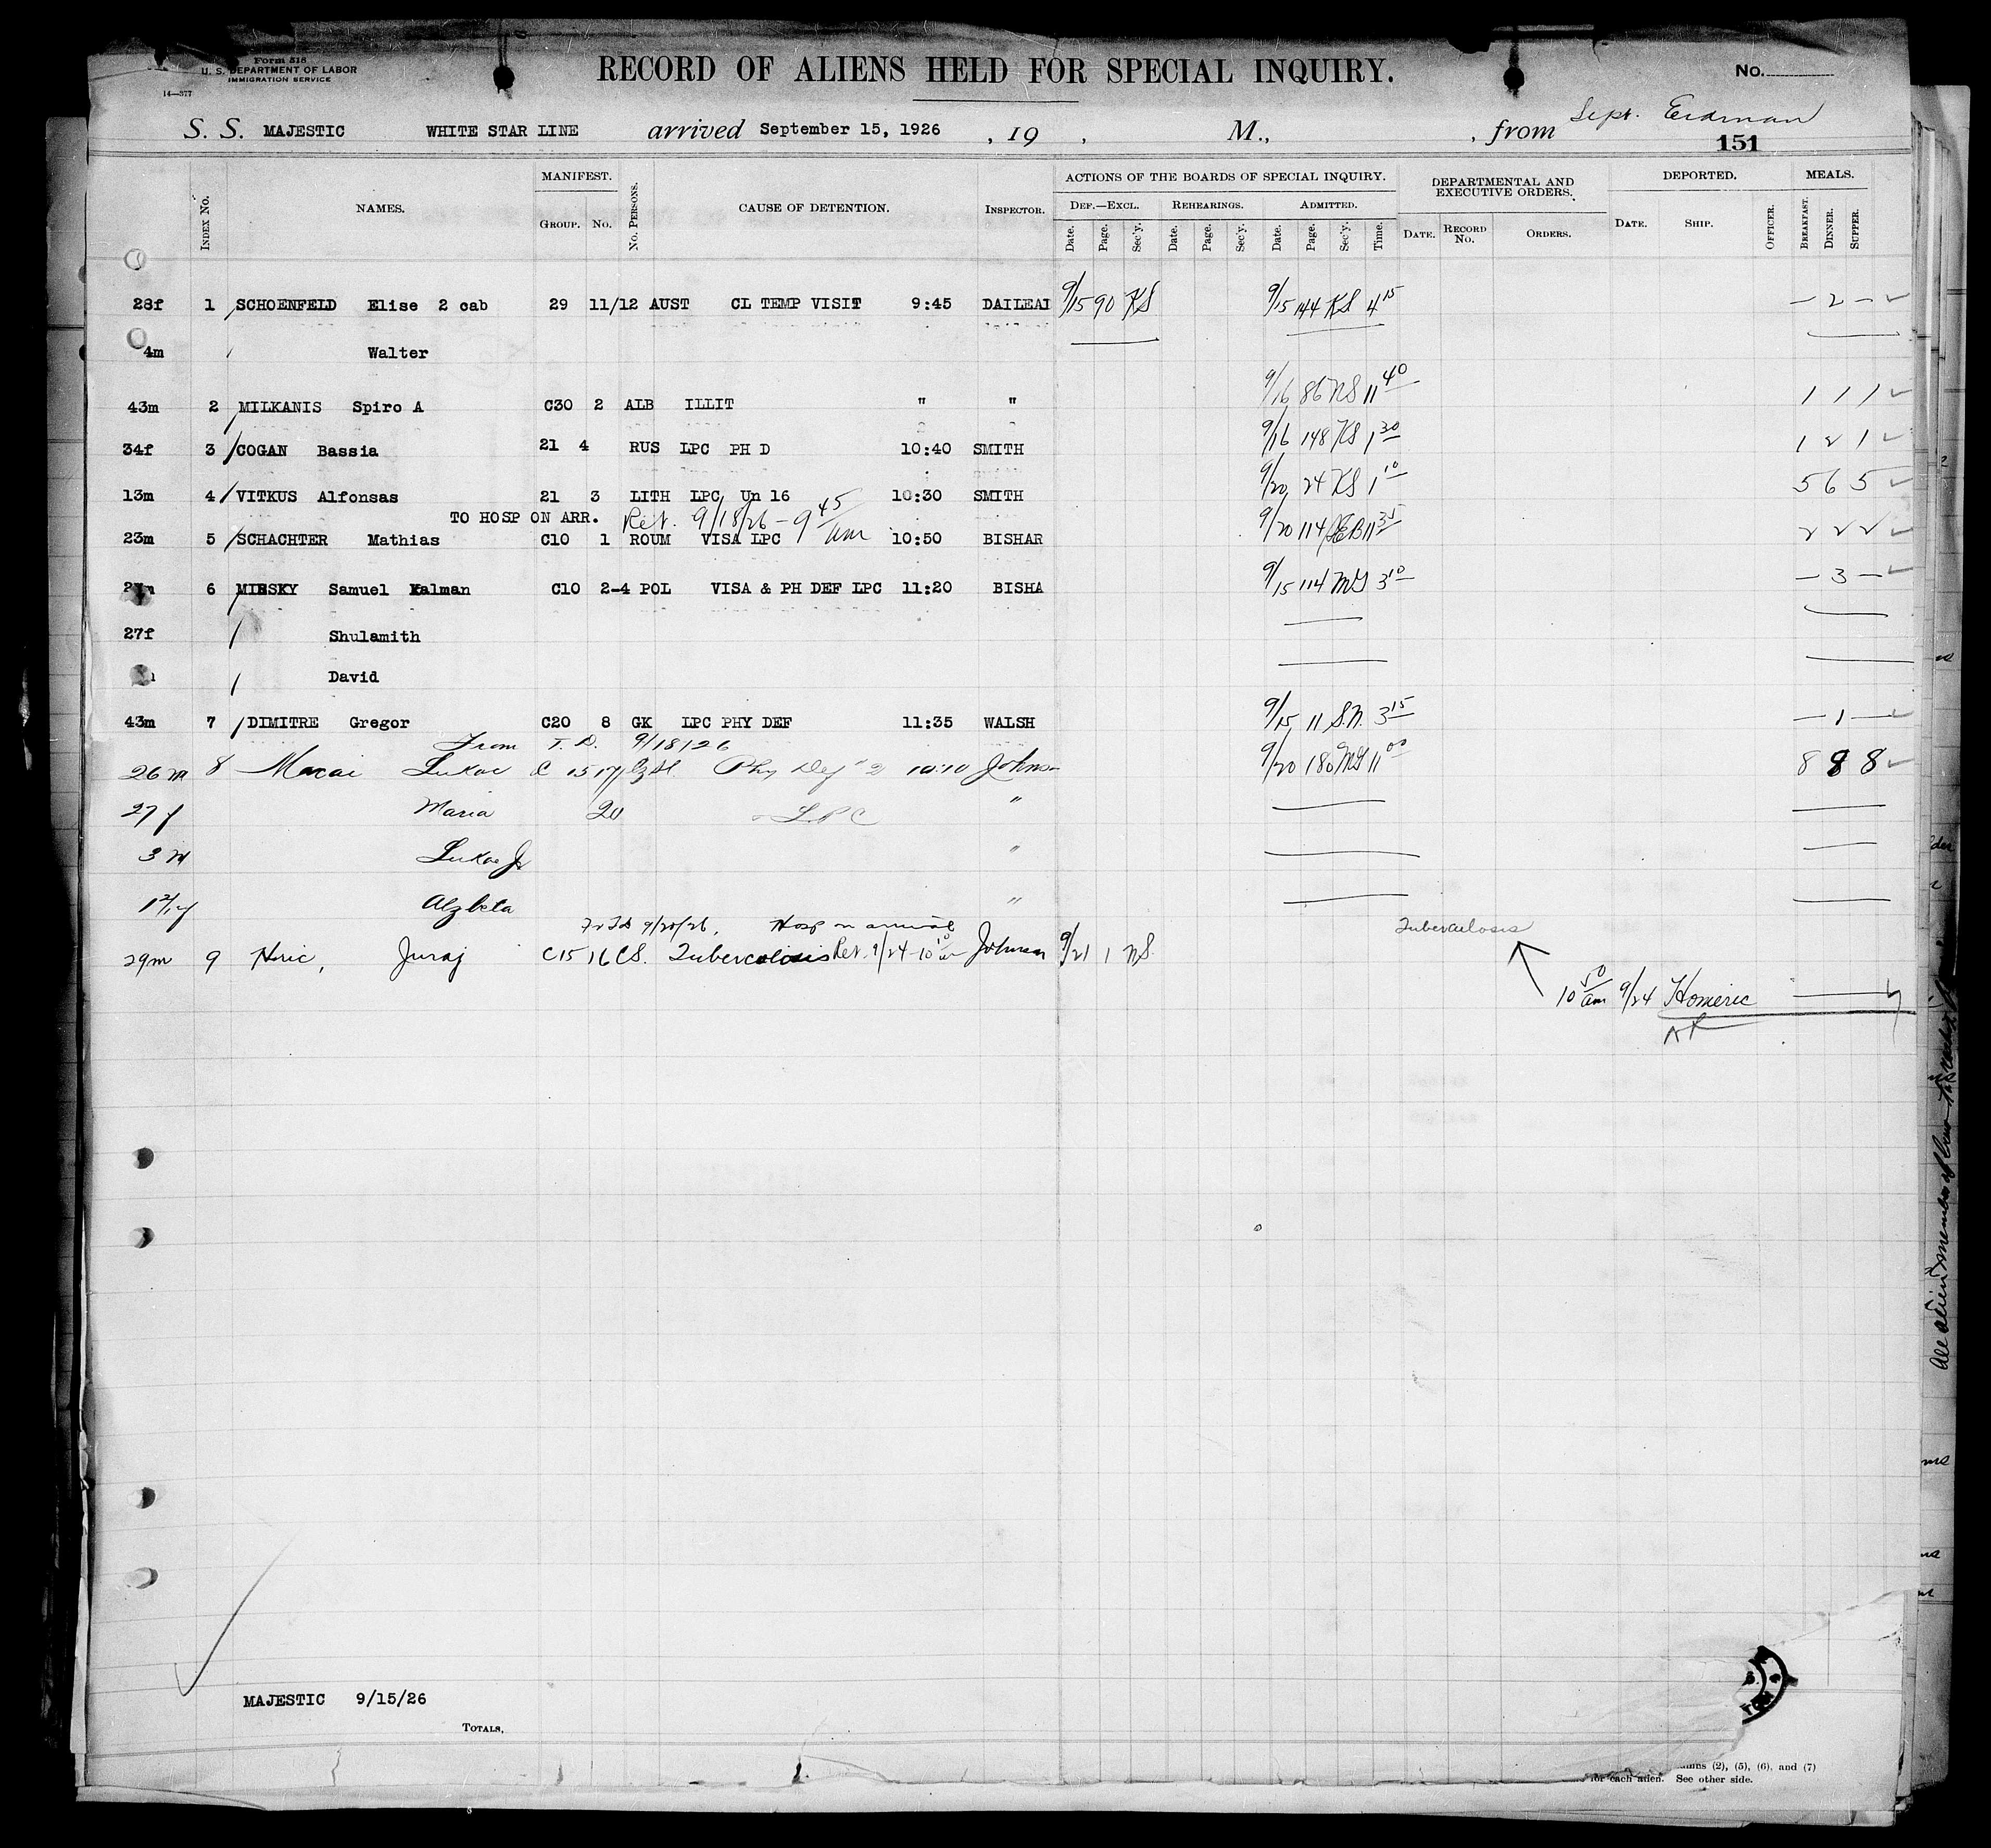 Form 518
U. S. DEPARTMENT OF LABOR
IMMIGRATION SERVICE
14—377
RECORD OF ALIENS HELD FOR SPECIAL INQUIRY.
No.
S. S. MAJESTIC WHITE STAR LINE arrived September 15, 1926 , 19 , M., , from Sept. Erdman
151
Index No. NAMES. MANIFEST. Group. No. No. Persons. CAUSE OF DETENTION. Inspector.
ACTIONS OF THE BOARDS OF SPECIAL INQUIRY. DEPARTMENTAL AND EXECUTIVE ORDERS. DEPORTED. MEALS.
Def.—Excl. Rehearings. Admitted.
Date. Page. Sec'y. Date. Page. Sec'y. Date. Page. Sec'y. Time. Date. Record No. Orders. Date. Ship. Officer. Breakfast. Dinner. Supper.
28f 1 SCHOENFELD Elise 2 cab 29 11/12 AUST CL TEMP VISIT 9:45 DAILEAI 9/15 90 KS 9/15 144 KS 4 15 — 2 —
4m Walter
43m 2 MILKANIS Spiro A C30 2 ALB ILLIT " " 9/16 86 NS 11 40 1 1 1
34f 3 COGAN Bassia 21 4 RUS LPC PH D 10:40 SMITH 9/16 148 KS 1 30 1 2 1
13m 4 VITKUS Alfonsas 21 3 LITH LPC Un 16 10:30 SMITH 9/20 24 KS 1 10 5 6 5
TO HOSP ON ARR. Ret. 9/18/26 – 9 45 am
23m 5 SCHACHTER Mathias C10 1 ROUM VISA LPC 10:50 BISHAR 9/20 114 11 35 2 2 2
6 MIRSKY Samuel Kalman C10 2-4 POL VISA & PH DEF LPC 11:20 BISHA 9/15 114 MG 3 10 — 3 —
27f Shulamith
David
43m 7 DIMITRE Gregor C20 8 GK LPC PHY DEF 11:35 WALSH 9/15 11 S.N. 3 15 — 1 —
From T. D. 9/18/26
26 m 8 Macai Lukac C 15 17 Phy Def 10:10 Johns 9/20 180 MG 11 00 8 8 8
27 f Maria 20 LPC "
3 M Lukac Jr "
Alzbeta "
Fr TD 9/20/26. Hosp on arrival Tuberculosis
29m 9 Hric, Juraj C15 16 CS. Tuberculosis Ret. 9/24 - 10 Johnson 9/21 1 NS.
10 50 am 9/24 Homeric
MAJESTIC 9/15/26
Totals,
(2), (5), (6), and (7)
for each alien. See other side.